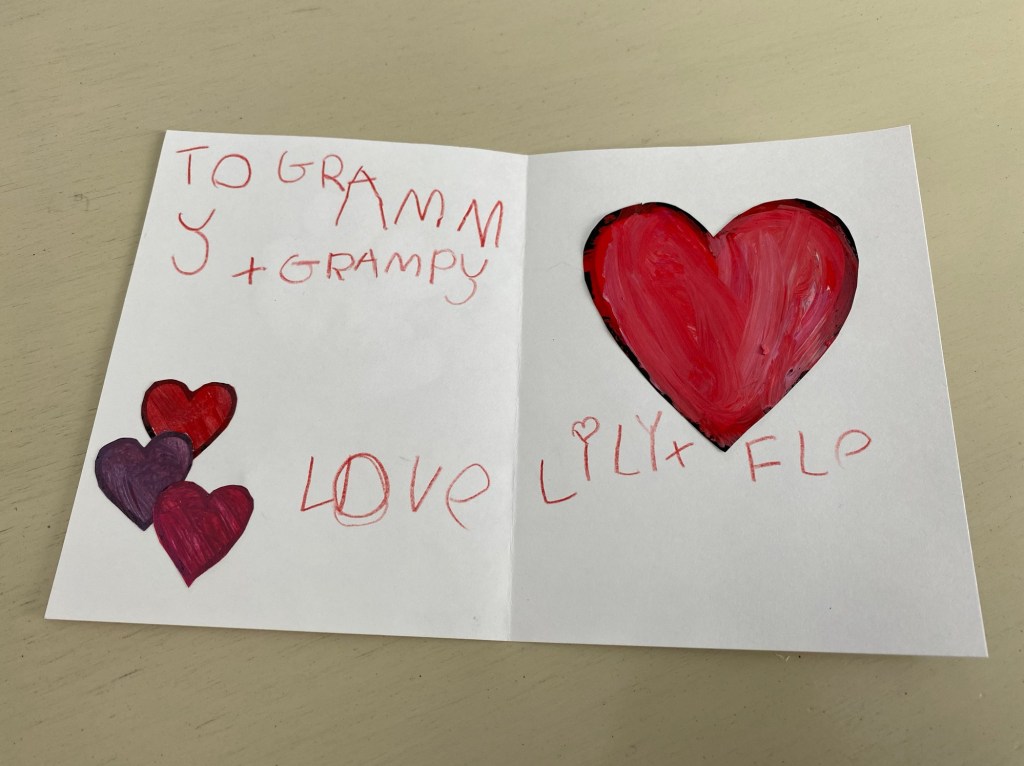 TO GRAMM
y
+ GRAMPy
LOVe
LiLY+ FLo